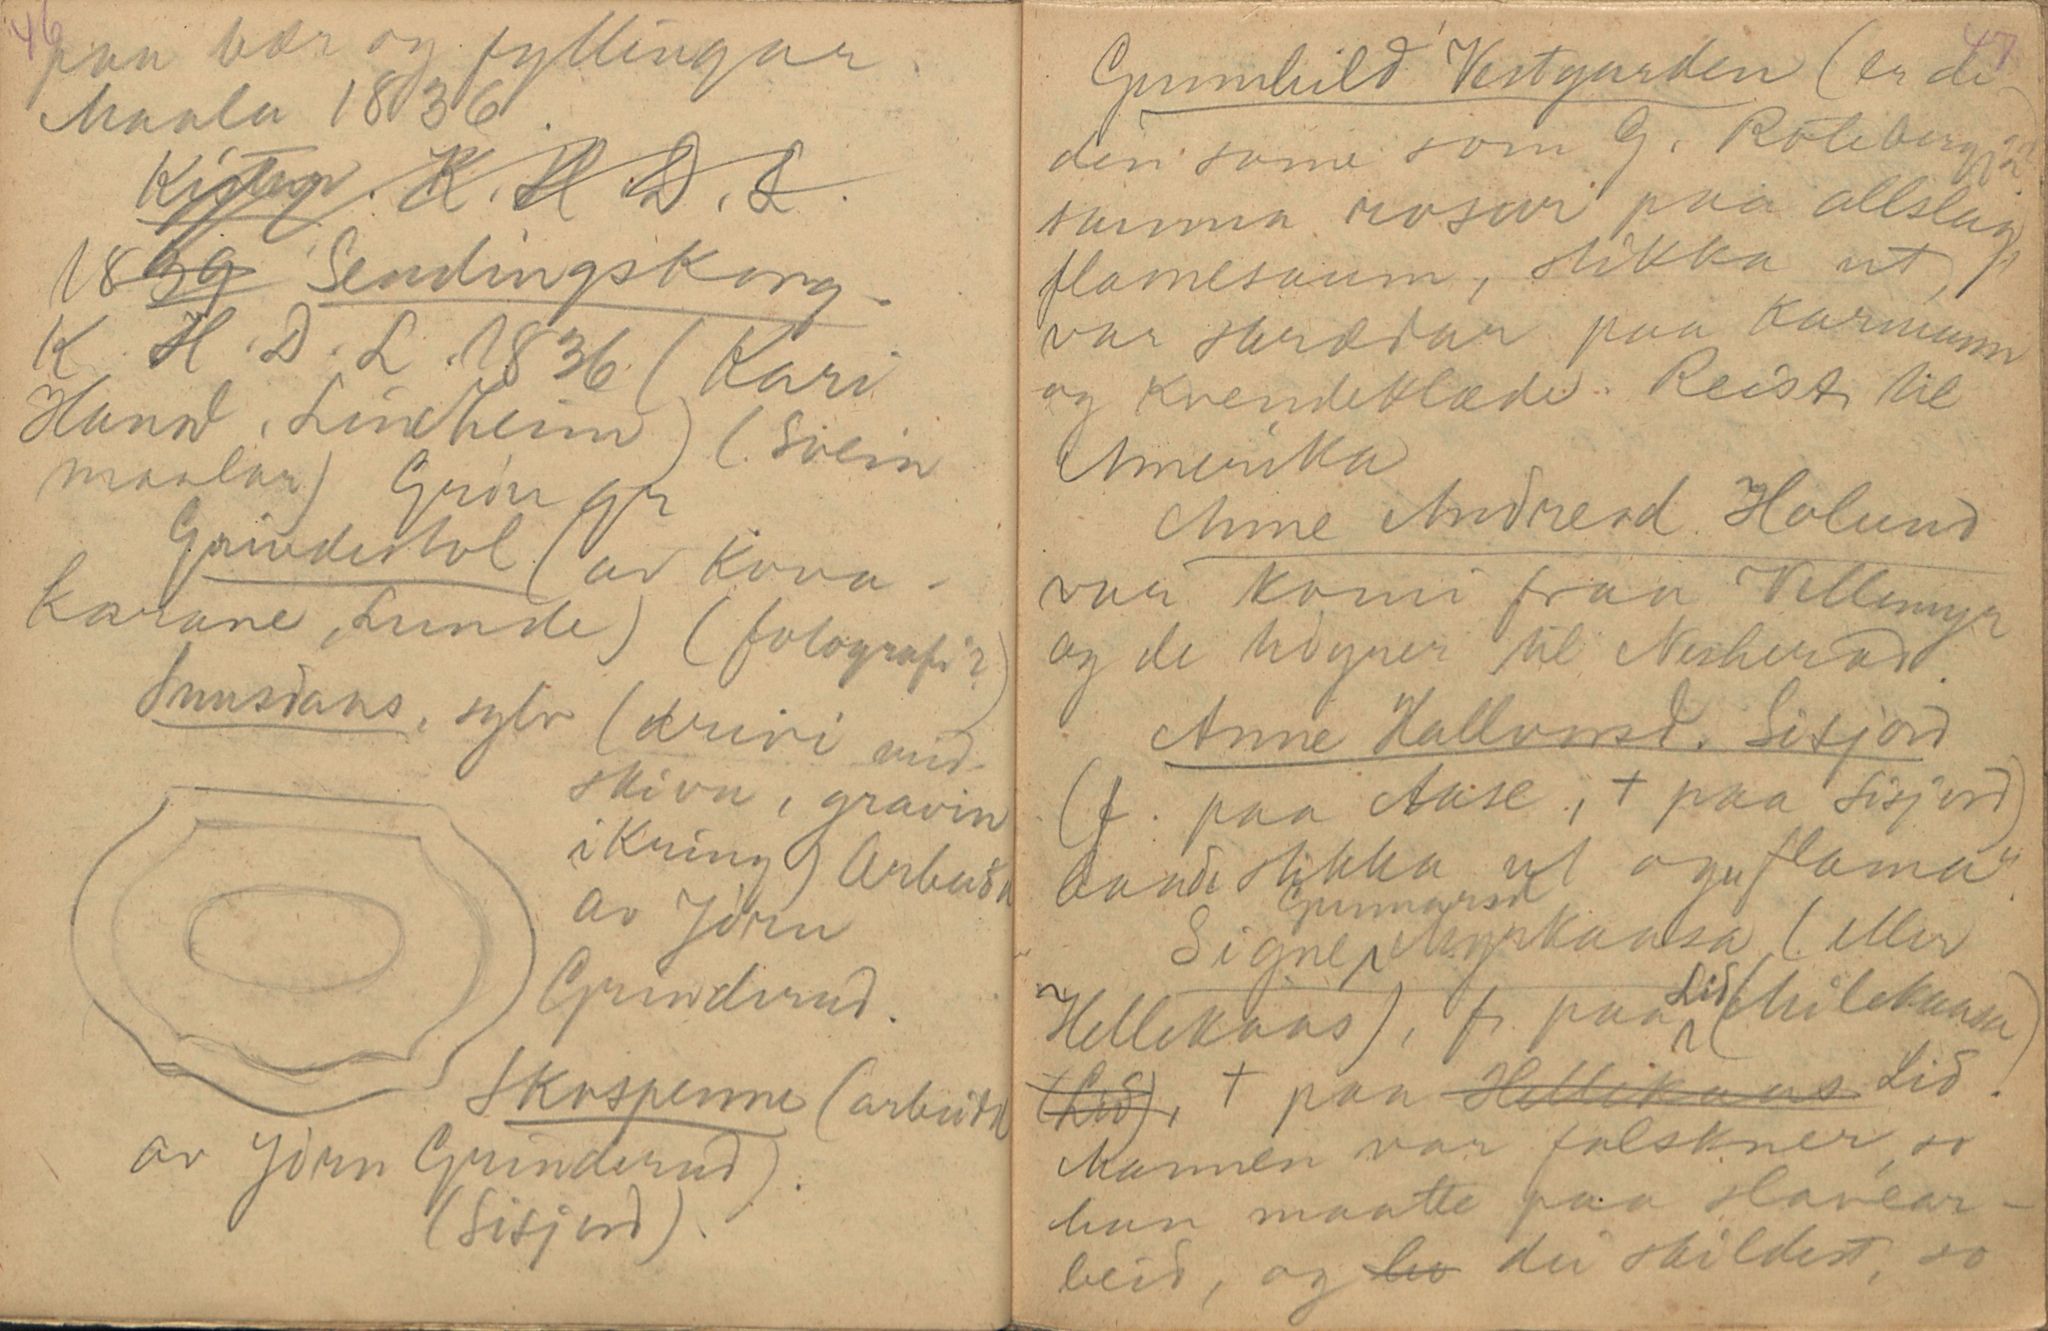 46
paa bær og fyllingar.
Maala 1836.
Kistep. K. H. D. L.
1839 Sendingskorg.
K. H. D. L. 1836 (Kari
Hansd. Lindheim) (Svein
maalar) Grön gr
Grindestol (av Kova-
karane, Lunde) (fotografi?)
Snusdaas, sylv (drivi mid-
skiva, gravin
ikring) Arbeidd
av Jörn
Grinderud.
Skospenne (arbeidd
av Jörn Grinderud).
(Sisjord).
47
Gunnhild Vestgarden (er de
den same som G. Roteberg?)
sauma rosur paa allslag,
flamesaum, stikka ut,
var skræddar paa karmann
og kvendeklæde. Reist til
Amerika
Anne Andread Holund
var komi fraa Vellemyr
og de höyrer til Nesherad.
Anne Hallvorsd. Sisjord
(f. paa Aase, † paa Sisjord)
baade stikka ut og flamar.
Signe Gunnarsd Myrkaasa (eller
Hellekaas), f. paa Lid (Milekaasa)
(Lid), † paa Hellekaas Lid.
Mannen var falskner, so
han maatte paa slavear-
beid, og ho dei skildest, so